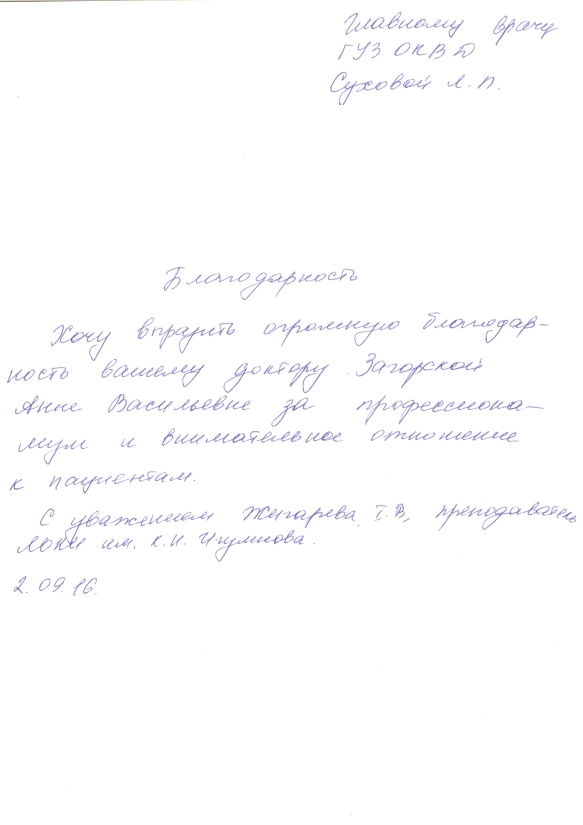 Главному врачу
ГУЗ ОКВД
Суховой Л.П.
Благодарность
Хочу выразить огромную благодар-
ность вашему доктору Загорской
Анне Васильевне за профессиона-
лизм и внимательное отношение
к пациентам.
С уважением Жигарева Т.В., преподаватель
ЛОКИ им. К.Н. Игумнова.
2.09.16.